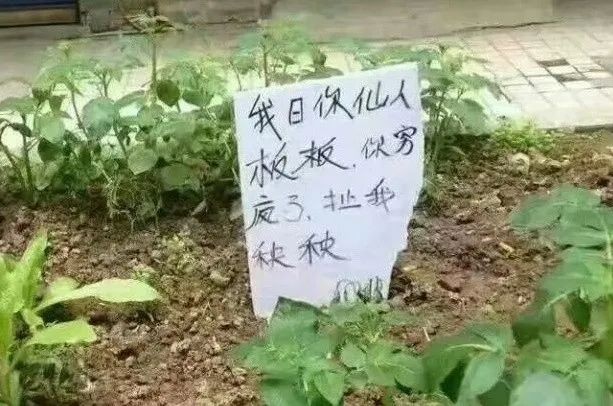 我日你仙人
板板，你穷
疯了，扯我
秧秧